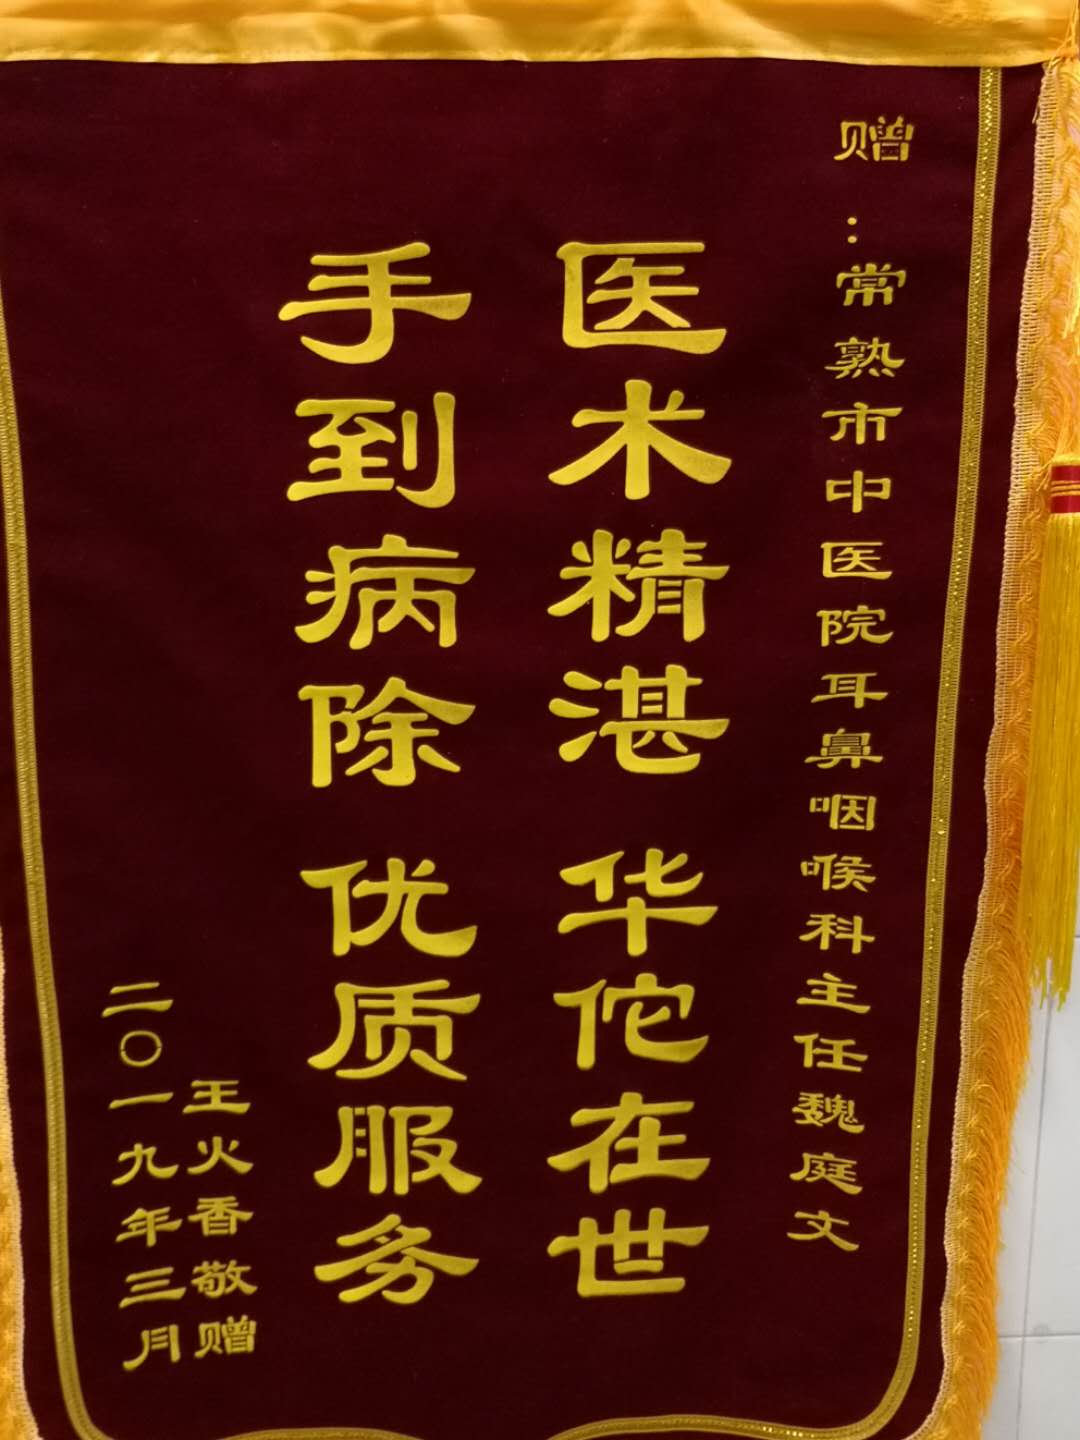 赠：常熟市中医院耳鼻咽喉科主任魏庭文
医术精湛 华佗在世
手到病除 优质服务
王火香敬赠
二〇一九年三月